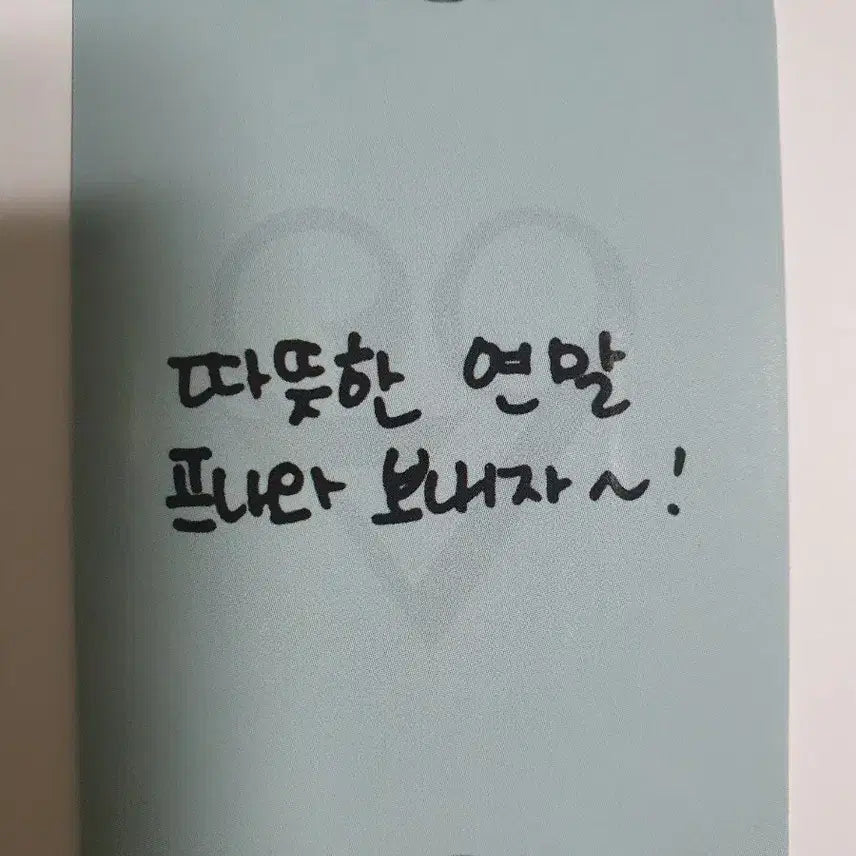 따뜻한 연말
프나와 보내자~!